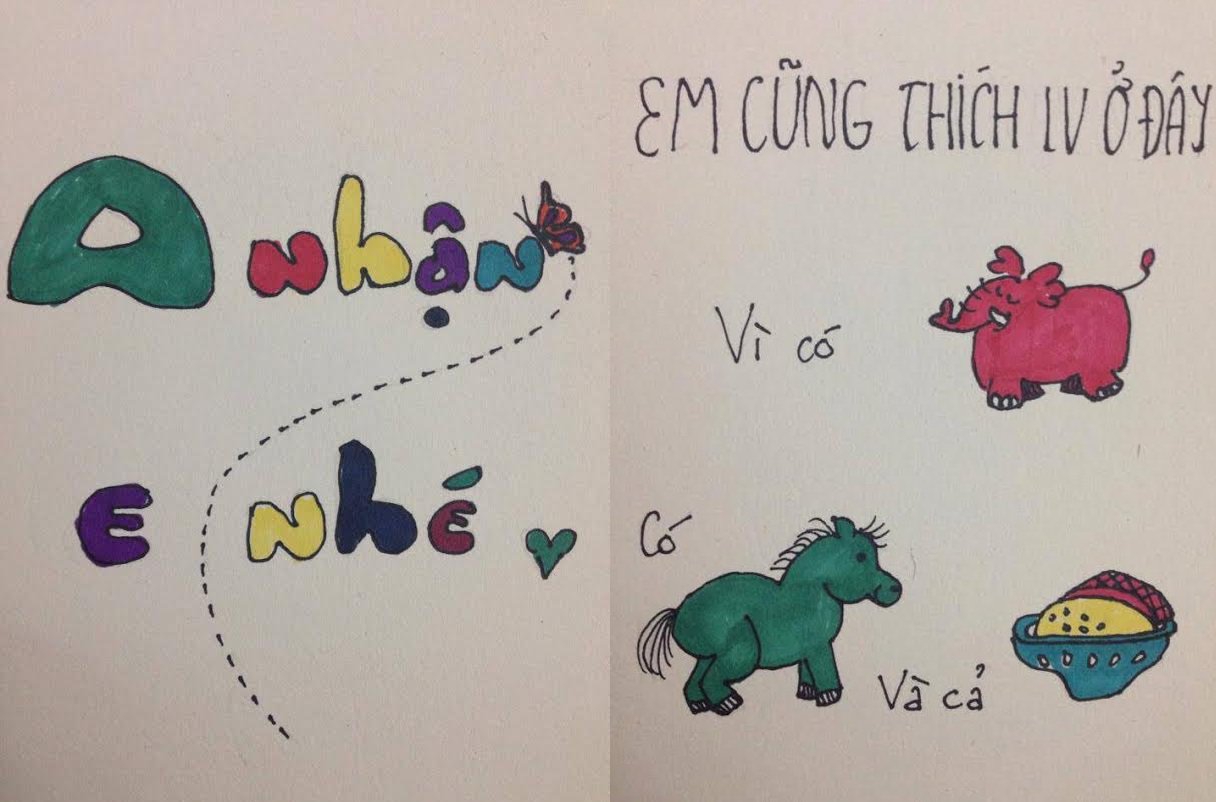 a nhận
e nhé
EM CŨNG THÍCH LV Ở ĐÂY
Vì có
Có
Và cả